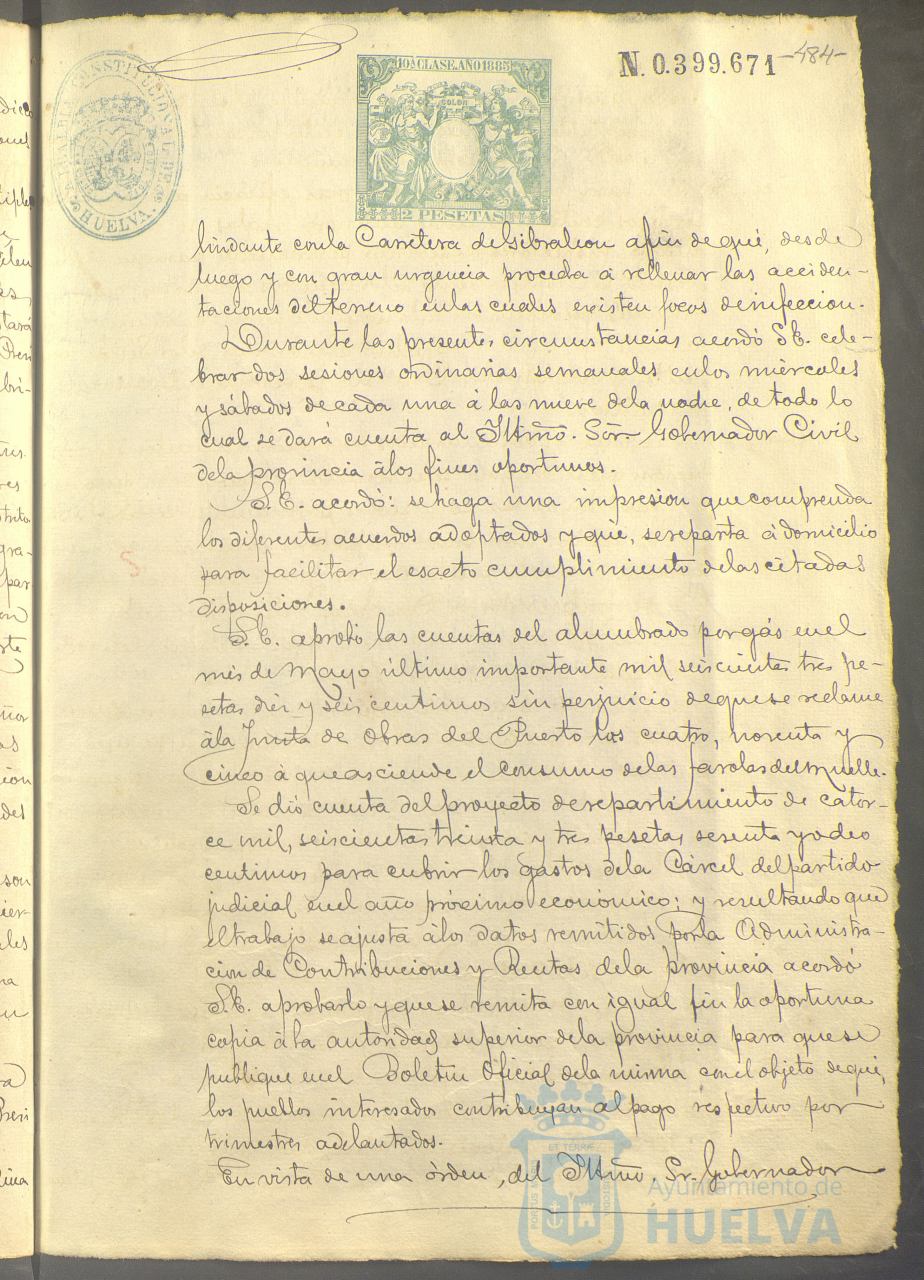 ALCALDIA CONSTITUCIONAL DE HUELVA.
10ª CLASE. AÑO 1885
2 PESETAS
N. 0.399.671
-484-
lindante con la Carretera de Gibraleon a fin de que, desde
luego y con gran urgencia proceda á rellenar las acciden-
taciones del terreno en las cuales existen focos de infeccion.
Durante las presentes circunstancias acordó S.E. cele-
brar dos sesiones ordinarias semanales en los miércoles
y sábados de cada una á las nueve de la noche, de todo lo
cual se dará cuenta al Iltmo. Sor. Gobernador Civil
de la provincia á los fines oportunos.
S.E. acordó: se haga una impresion que comprenda
los diferentes acuerdos adoptados y que, se reparta á domicilio
para facilitar el esacto cumplimiento de las citadas
disposiciones.
S.E. aprobó las cuentas del alumbrado por gás en el
mes de Mayo último importante mil seiscientas tres pe-
setas diez y seis centimos sin perjuicio de que se reclame
á la Junta de Obras del Puerto las cuatro, noventa y
cinco á que asciende el consumo de las farolas del muelle.
Se dió cuenta del proyecto de repartimiento de cator-
ce mil, seiscientas treinta y tres pesetas sesenta y ocho
centimos para cubrir los gastos de la Cárcel del partido
judicial en el año próximo económico; y resultando que
el trabajo se ajusta á los datos remitidos por la Administra-
cion de Contribuciones y Rentas de la provincia acordó
S.E. aprobarlo y que se remita con igual fin la oportuna
copia á la autoridad superior de la provincia para que se
publique en el Boletin Oficial de la misma con el objeto de que,
los pueblos interesados contribuyan al pago respectivo por
trimestres adelantados.
En vista de una órden, del Iltmo. Sr. Gobernador
Ayuntamiento de
HUELVA